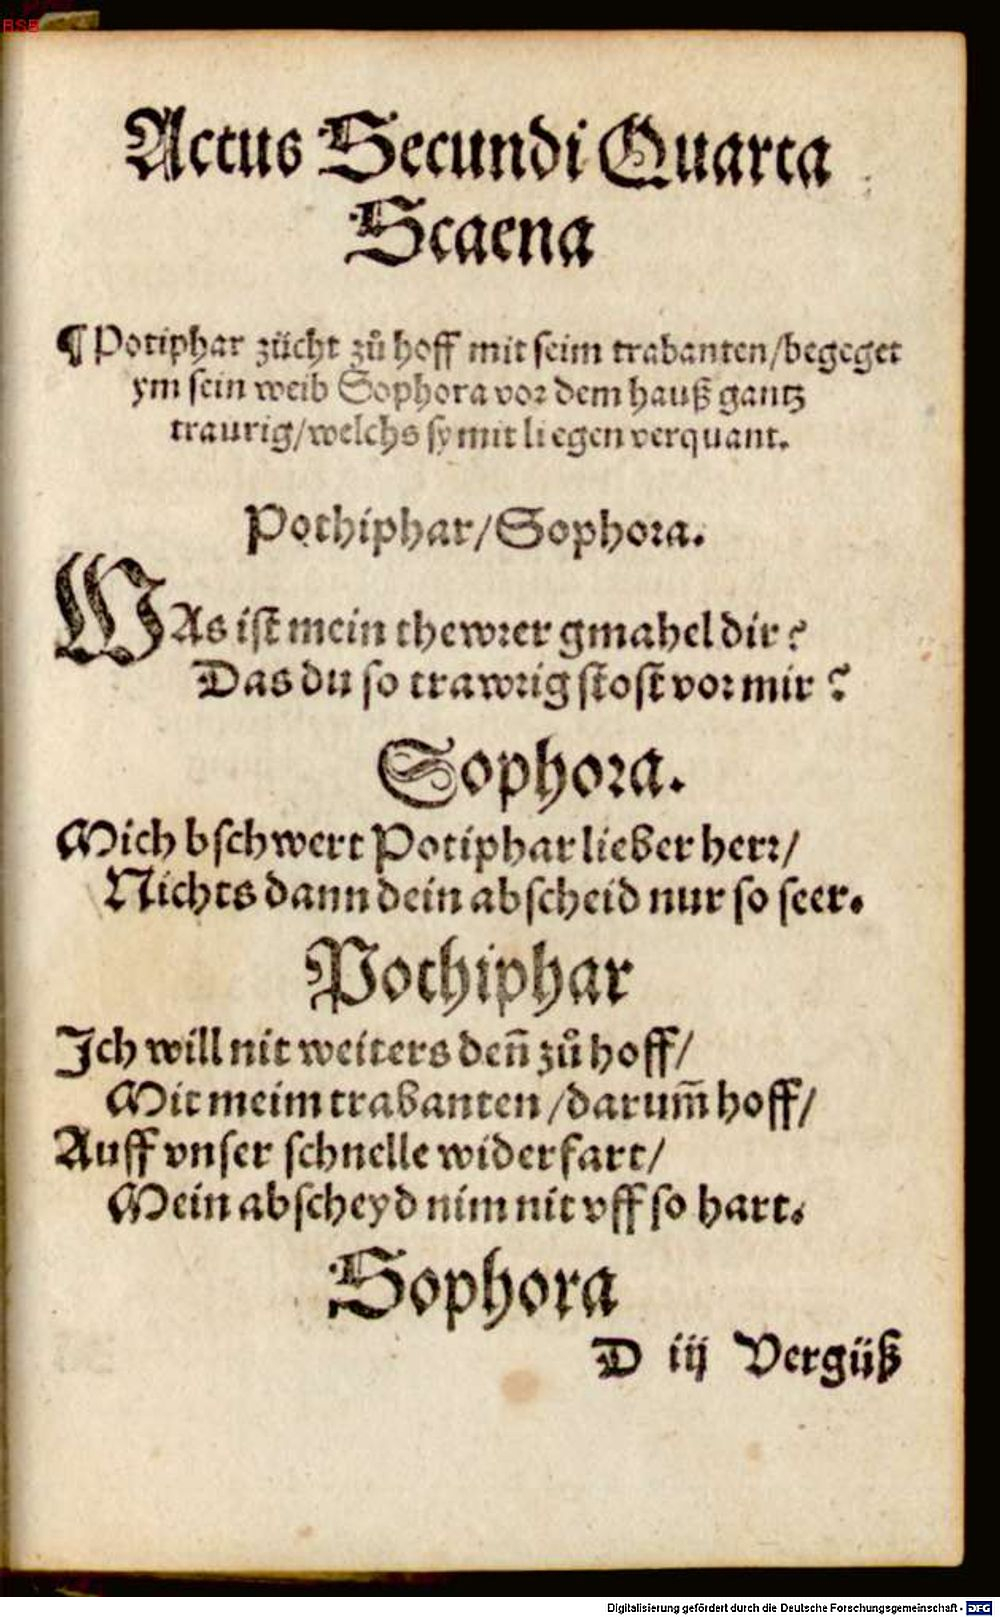 BSB
Actus Secundi Quarta
Scaena
¶ Potiphar zücht zů hoff mit seim trabanten/begeget
ym sein weib Sophora vor dem hauß gantz
traurig/welchs sy mit liegen verquant.
Pothiphar/Sophora.
WAs ist mein thewrer gmahel dir?
Das du so trawrig stost vor mir?
Sophora.
Mich bschwert Potiphar lieber herr/
Nichts dann dein abscheid nur so seer.
Pothiphar
Ich will nit weiters deñ zů hoff/
Mit meim trabanten/darum̃ hoff/
Auff vnser schnelle widerfart/
Mein abscheyd nim nit vff so hart.
Sophora
D iij Vergüß
Digitalisierung gefördert durch die Deutsche Forschungsgemeinschaft - DFG